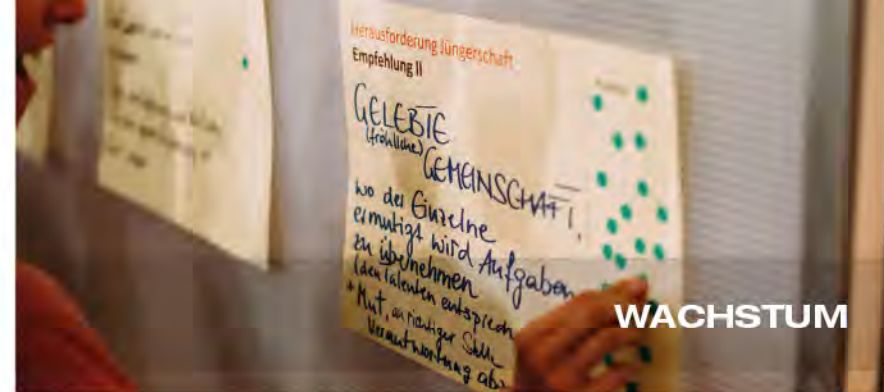 Herausforderung Jüngerschaft
Empfehlung II
GELEBTE
(fröhliche)
GEMEINSCHAFT,
wo der Einzelne
ermutigt wird Aufgaben
zu übernehmen
(den Talenten entsprech
+ Mut, an richtiger Stelle
Verantwortung ab
WACHSTUM